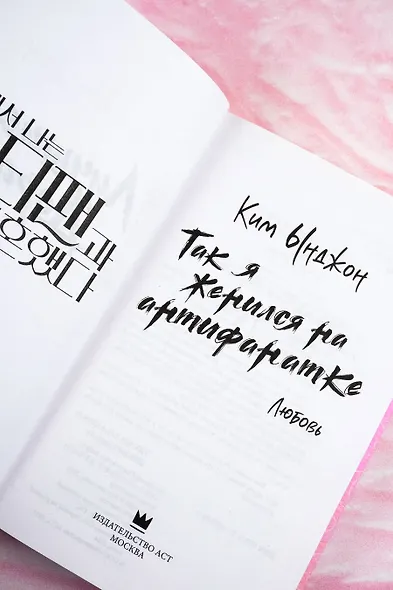 서 나는
티팬과
혼했다
Ким Ынджон
Так я
женился на
антифанатке
Любовь
ИЗДАТЕЛЬСТВО АСТ
МОСКВА